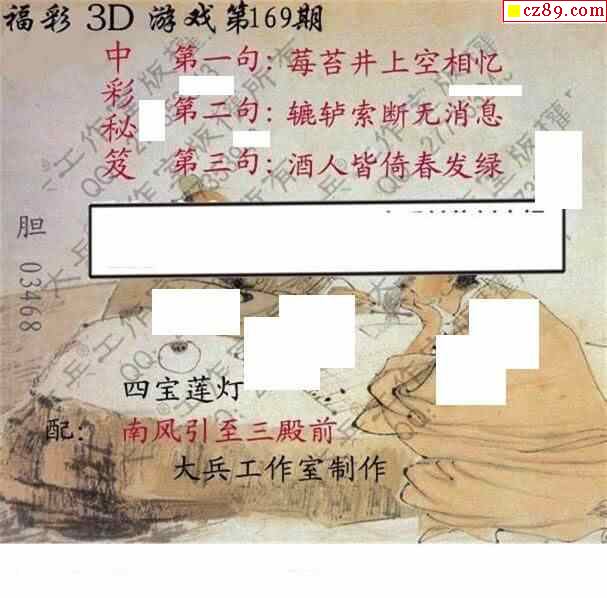 福彩 3D 游戏第169期
cz89.com
中彩秘笈
第一句：莓苔井上空相忆
第二句：辘轳索断无消息
第三句：酒人皆倚春发绿
胆 03468
四宝莲灯
配：南风引至三殿前
大兵工作室制作